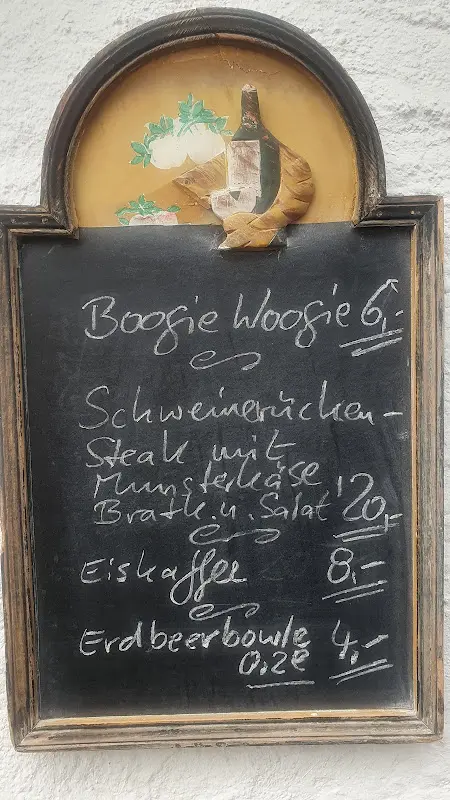 Boogie Woogie 6,-
Schweinerücken-
Steak mit
Munsterkäse
Bratk. u. Salat 20,-
Eiskaffee 8,-
Erdbeerbowle 4,-
0.2l